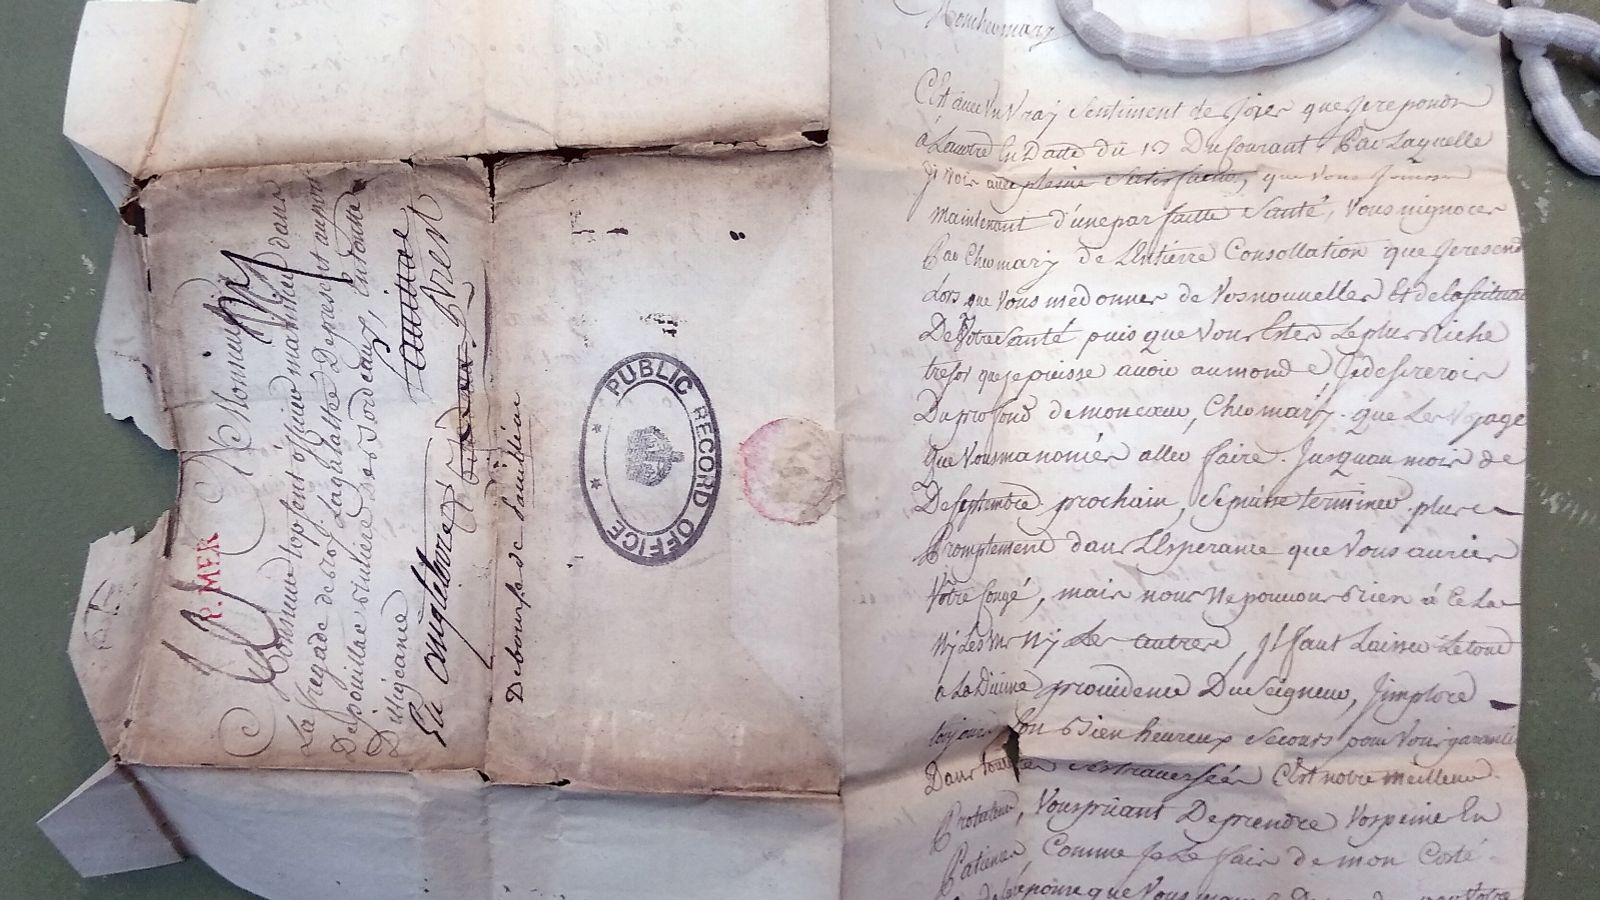 P.MER
A Monsieur
Monsieur topsent officier marinier dans
La fregade du roy Lagalathée Deprest et auport
Depouillac riviere de Bordeaux, en toutte
Diligence
En angletaire Brest
Debourse de Paublien
PUBLIC RECORD OFFICE
Moncheomary
C'Est avec Un Vray Sentiment de Joies que Je reponds
á Lavotre En Datte du 13 Du Courant, Par Laquelle
Je vois avec pleine Satisfaction, que Vous Jouisse
maintenant d'une parfaitte Santé, Vous nignores
Pas Cheomary de L'Entierre Consollation que Je resend
Lors que Vous me donner de Vos nouvelles Et de la scituat
De Votre Santé puis que Vous Ester Le plus Riche
tresor que Je puisse avoir au monde Je desirerois
Du profond de mon cœur, Cheomary que Le Voyage
que Vous manonser aller faire Jusquau mois de
De Septembre prochain, Se puisse terminer plus
Promptement dans L'Esperance que Vous auries
Votre Congé, mais nous Ne pouvons Rien á Cela
Ny Les Uns Ny Les autres, Il faut Laisser Le tout
a La Divine providence Du Seigneur, J'implore
toujours Son Bien heureux Secours pour Vous garantir
Dans toutes ses traversées C'Est notre meilleur
Protateur, Vous priant De prendre Vos peine En
Patience, Comme Je Le fais de mon Costé